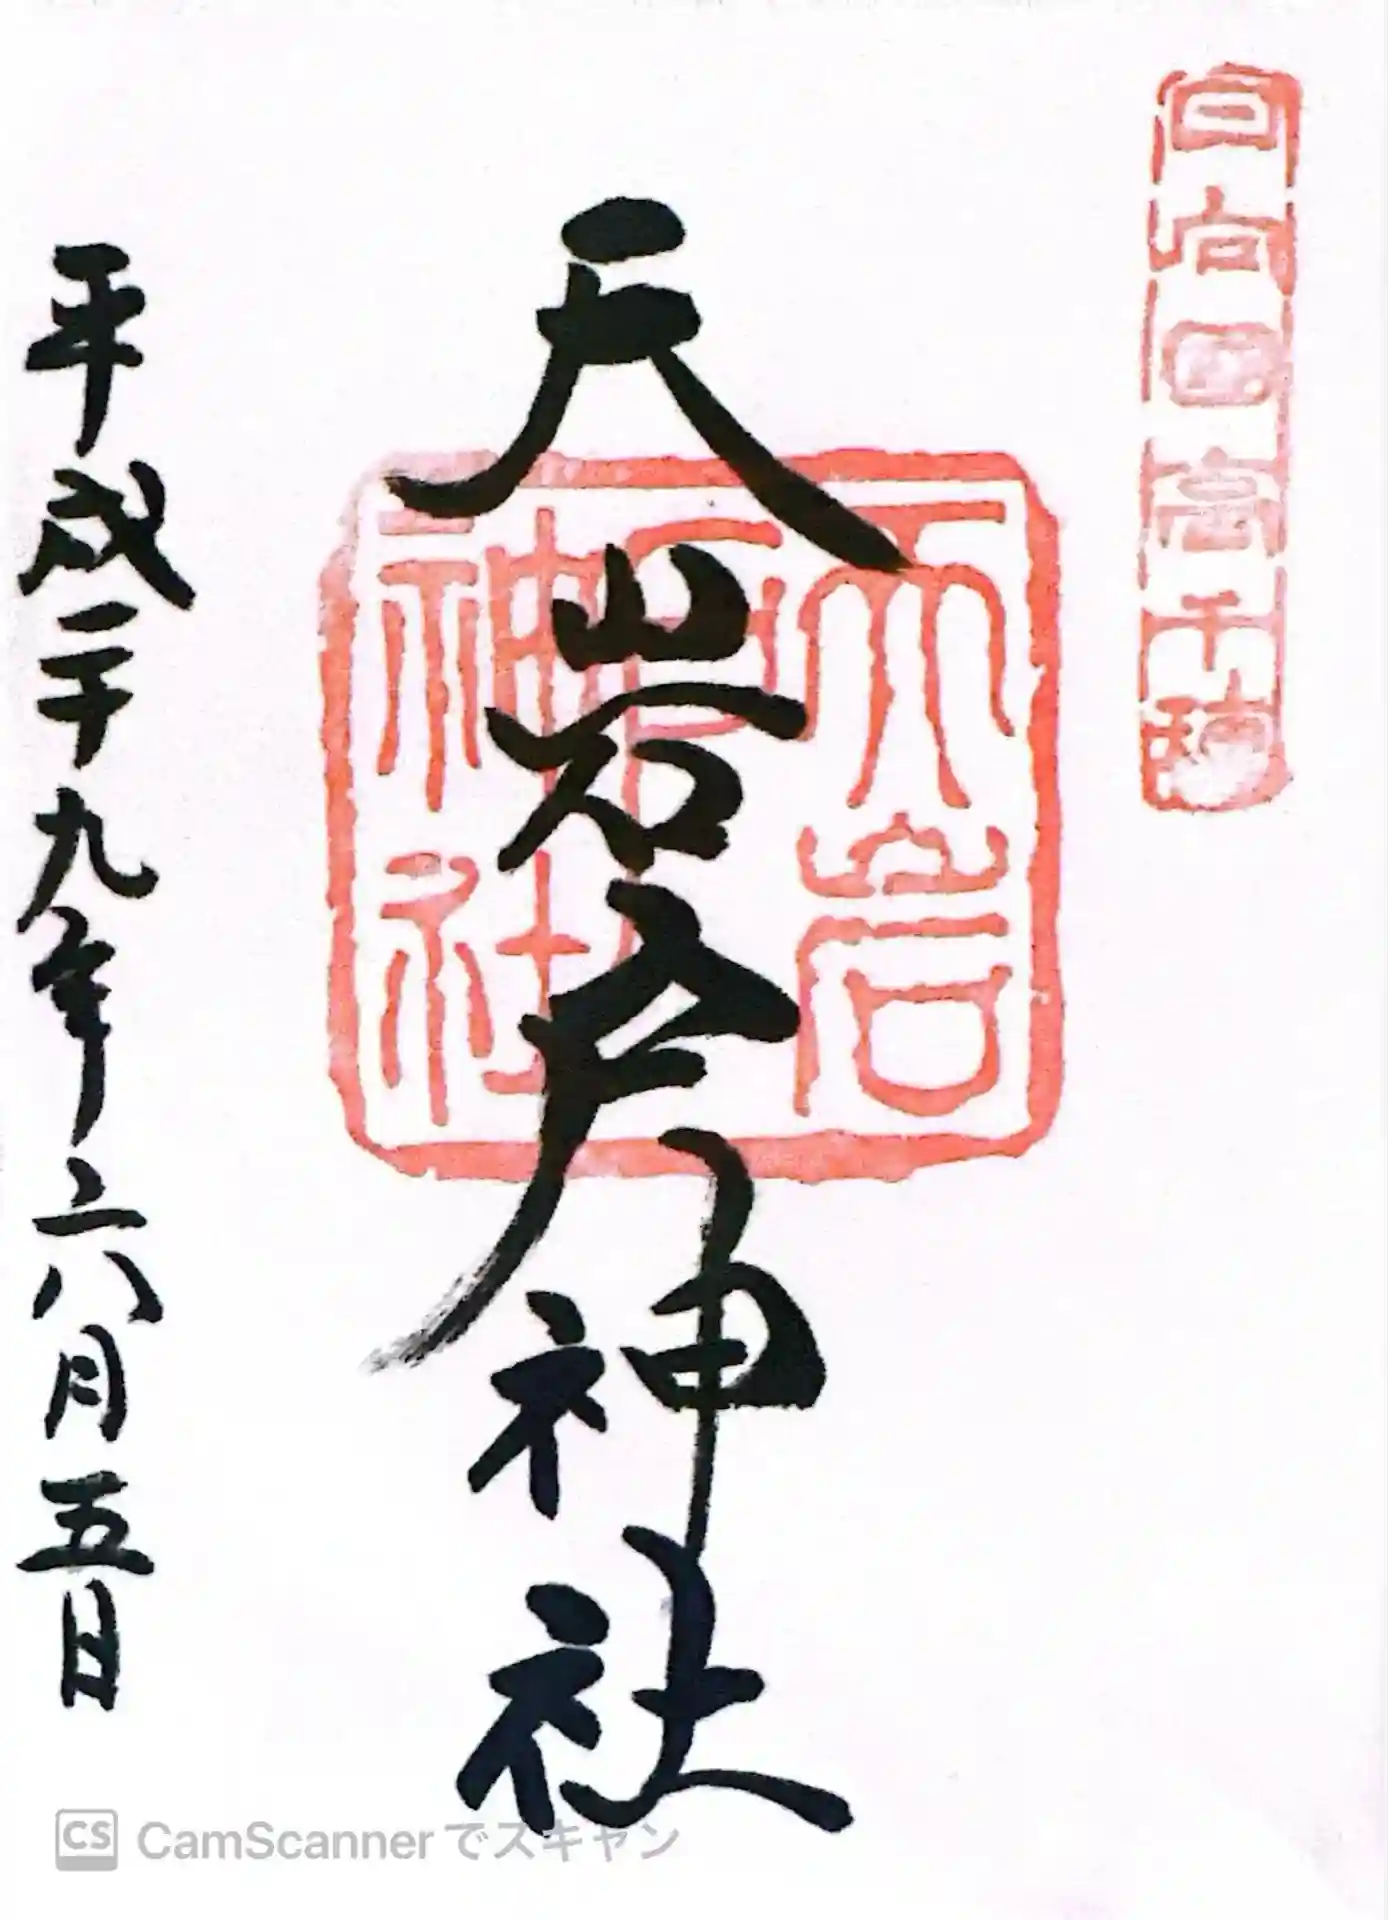 日向国高千穂
天岩戸神社
天岩
戸
神社
平成二十九年六月五日
CS CamScannerでスキャン